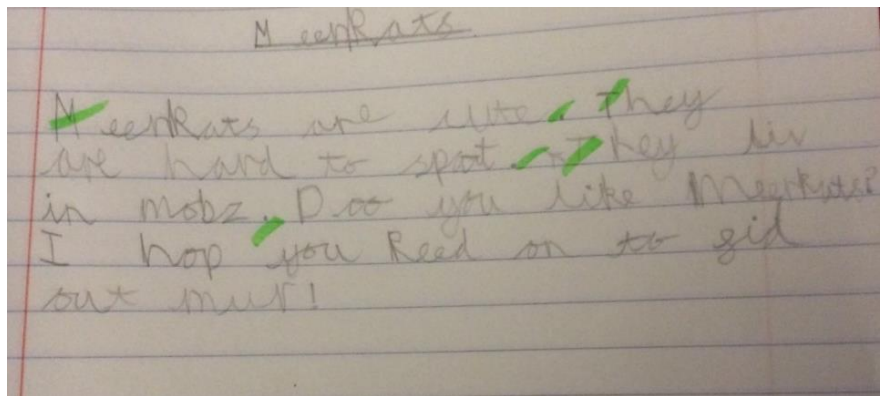 MeerKats
MeerKats are cute. They
are hard to spot. They liv
in mobz. Doo you like Meerkats?
I hop you Reed on to
out mur!